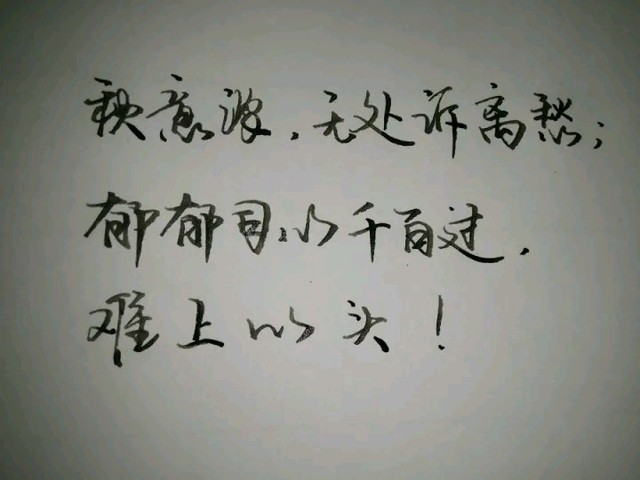 秋意浓，无处诉离愁；
郁郁心千百过，
难上心头！